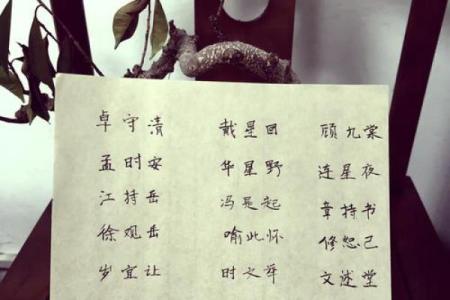 卓守清 戴星回 顾九棠
孟时安 华星野 连星夜
江持岳 冯是起 章持书
徐观岳 喻此怀 修恕己
岁宜让 时之舜 文述堂